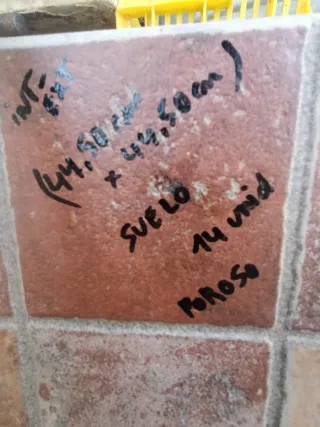 INT-
EXT
(44,50cm
x 44,50cm)
SUELO
14 unid
POROSO